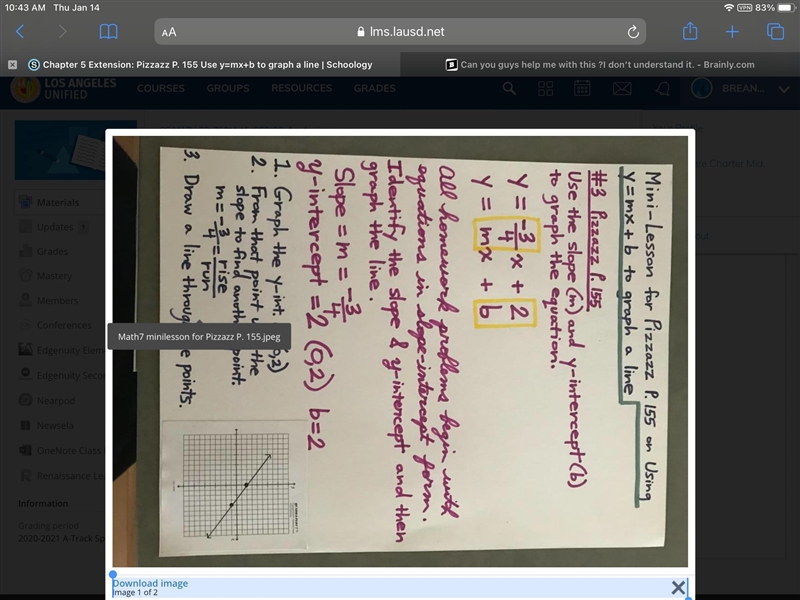 10:43 AM Thu Jan 14
VPN 83%
AA
lms.lausd.net
Chapter 5 Extension: Pizzazz P. 155 Use y=mx+b to graph a line | Schoology
Can you guys help me with this ?I don't understand it. - Brainly.com
LOS ANGELES
UNIFIED
COURSES GROUPS RESOURCES GRADES
BREAN...
Materials
Updates
Grades
Mastery
Members
Conferences
Edgenuity Elem
Edgenuity Secon
Nearpod
Newsela
OneNote Class
Renaissance Le
Information
Grading period
2020-2021 A-Track Sp
e Charter Mid...
out
Mini-Lesson for Pizzazz P. 155 on Using
y=mx+b to graph a line
#3 Pizzazz P. 155
Use the slope (m) and y-intercept (b)
to graph the equation.
y = -3/4 x + 2
y = mx + b
All homework problems begin with
equations in slope-intercept form.
Identify the slope & y-intercept and then
graph the line.
Slope = m = -3/4
y-intercept = 2 (0,2) b=2
1. Graph the y-int. (0,2)
2. From that point u the
slope to find anoth point.
m = -3/4 = rise/run
3. Draw a line throug e points.
Math7 minilesson for Pizzazz P. 155.jpeg
Download image
Image 1 of 2